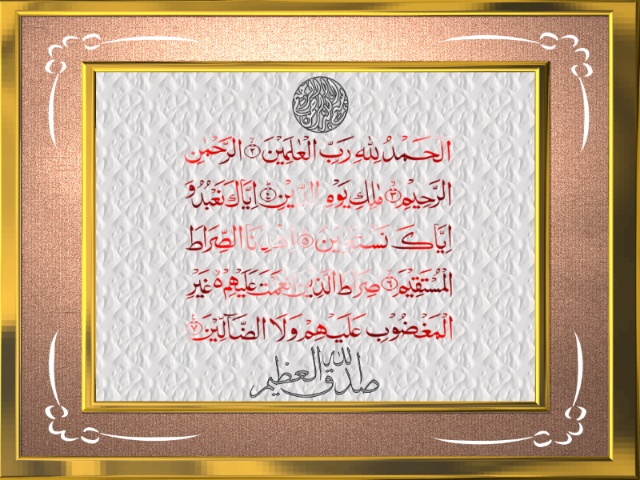 الحَمْدُ لِلّٰهِ رَبِّ الْعٰلَمِيْنَ ٢ الرَّحْمٰنِ
الرَّحِيْمِ ٣ مٰلِكِ يَوْمِ الدِّيْنِ ٤ اِيَّاكَ نَعْبُدُ وَ
اِيَّاكَ نَسْتَعِيْنُ ٥ اهْدِنَا الصِّرَاطَ
الْمُسْتَقِيْمَ ٦ صِرَاطَ الَّذِيْنَ اَنْعَمْتَ عَلَيْهِمْ غَيْرِ
الْمَغْضُوْبِ عَلَيْهِمْ وَلَا الضَّآلِّيْنَ ٧
صدق الله العظيم